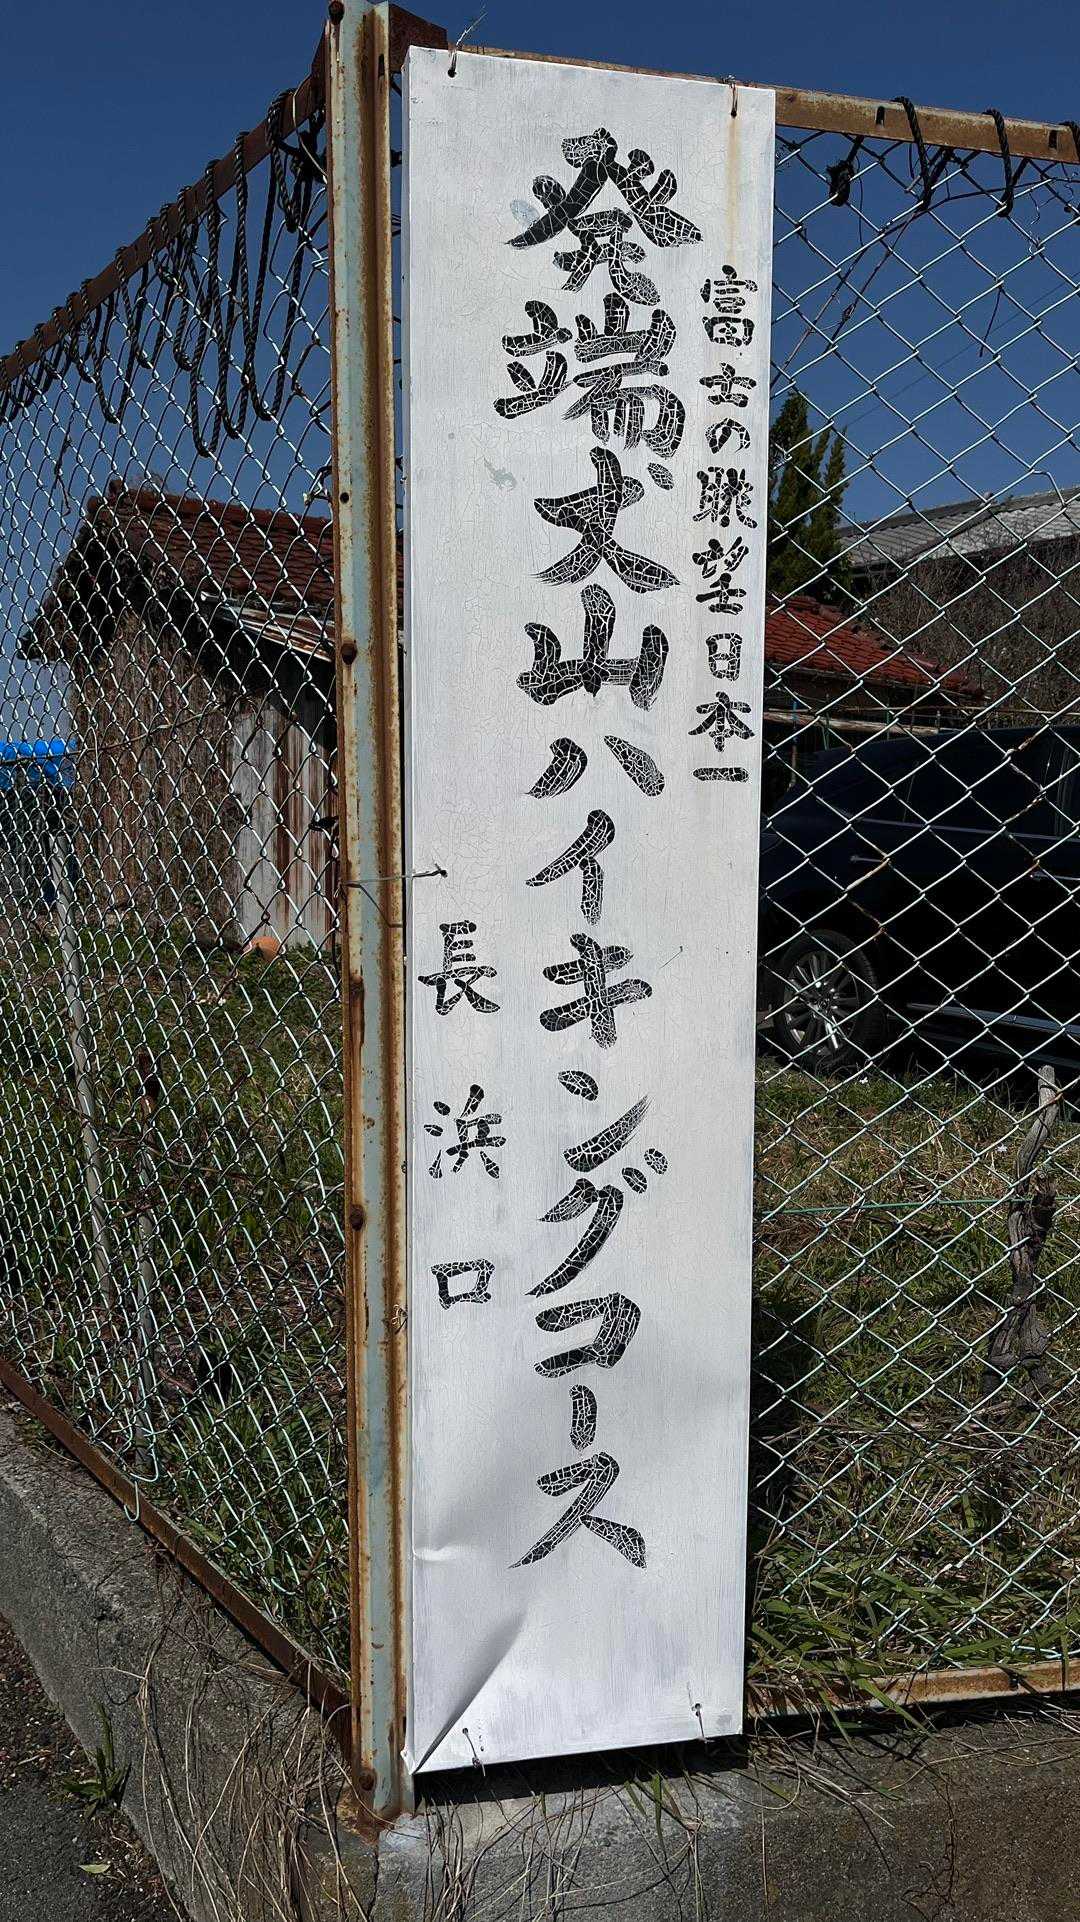 富士の眺望日本一
発端丈山ハイキングコース
長浜口